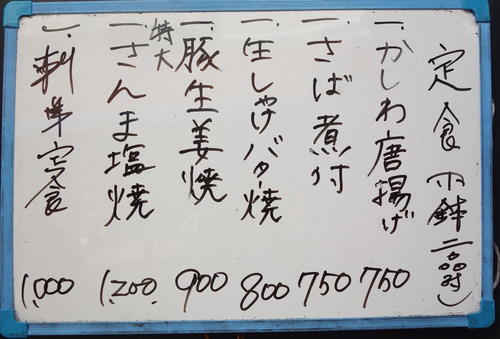 定食(小鉢二品付)
一、かしわ唐揚げ 750
一、さば煮付 750
一、生しゃけバター焼 800
一、豚生姜焼 900
一、特大さんま塩焼 1,200
一、刺身定食 1,000